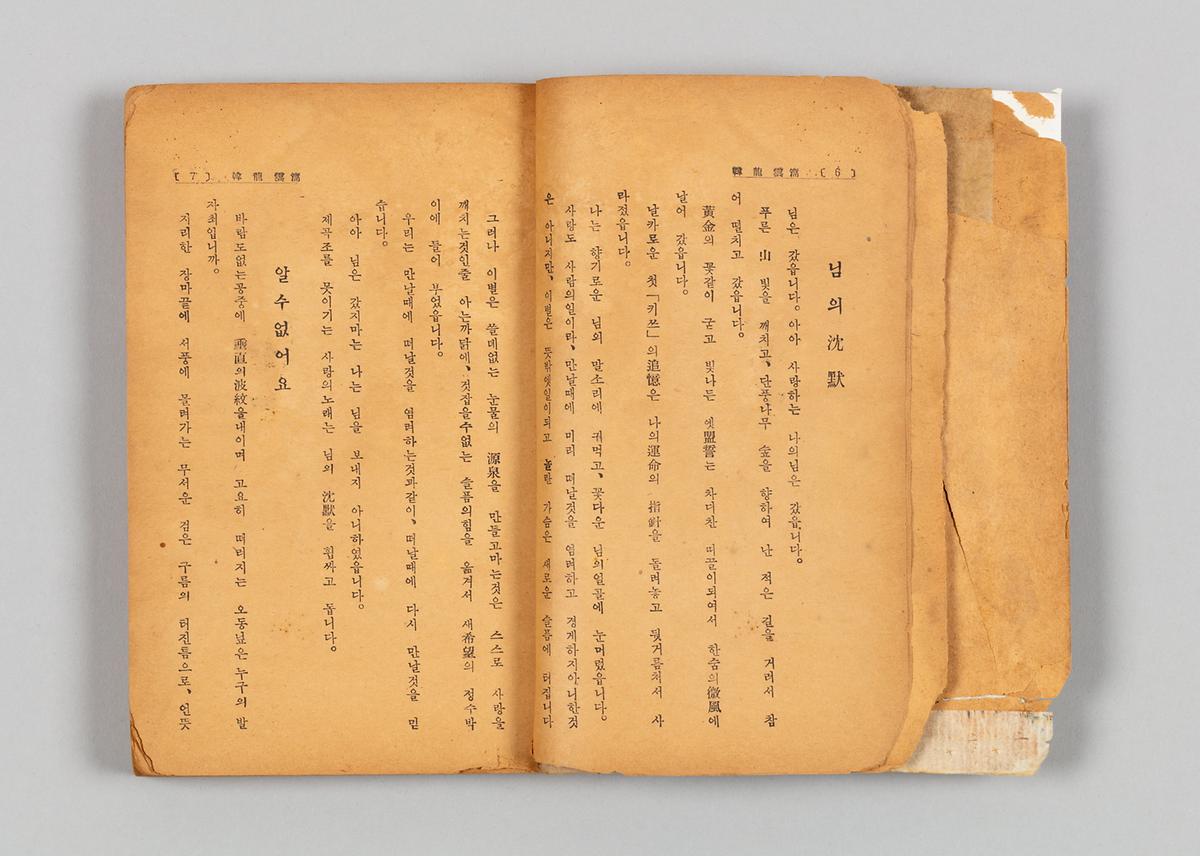 (6) 萬雲龍韓
님의 沈默
님은 갔읍니다。아아 사랑하는 나의님은 갔읍니다。
푸른 山 빛을 깨치고、단풍나무 숲을 향하여 난 적은 길을 거러서 참
어 떨치고 갔읍니다。
黃金의 꽃같이 굳고 빛나든 옛盟誓는 차디찬 띠끌이되여서 한숨의微風에
날어 갔읍니다。
날카로운 첫「키쓰」의追憶은 나의運命의 指針을 돌려놓고 뒷거름처서 사
라졌읍니다。
나는 향기로운 님의 말소리에 귀먹고、꽃다운 님의얼골에 눈머렀읍니다。
사랑도 사람의일이라、만날때에 미리 떠날것을 염려하고 경계하지아니한것
은 아니지만、이별은 뜻밖엣일이되고 놀란 가슴은 새로운 슬픔에 터집니다
(7) 韓龍雲
그러나 이별은 쓸데없는 눈물의 源泉을 만들고마는것은 스스로 사랑을
깨치는것인줄 아는까닭에、것잡을수없는 슬픔의힘을 옮겨서 새希望의 정수박
이에 들어 부었읍니다。
우리는 만날때에 떠날것을 염려하는것과같이、떠날때에 다시 만날것을 믿
습니다。
아아 님은 갔지마는 나는 님을 보내지 아니하였읍니다。
제곡조를 못이기는 사랑의노래는 님의 沈默을 휩싸고 돕니다。
알수없어요
바람도없는공중에 垂直의波紋을내이며 고요히 떠러지는 오동닢은누구의 발
자최입니까。
지리한 장마끝에 서풍에 몰려가는 무서운 검은 구름의 터진틈으로、언뜻